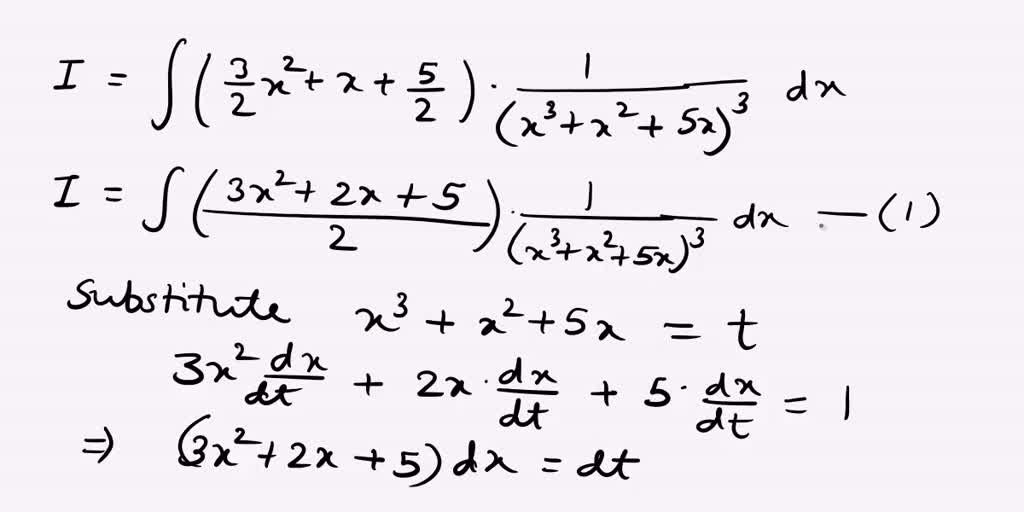 I = ∫ (3/2 x² + x + 5/2) · 1/(x³ + x² + 5x)³ dx
I = ∫ ((3x² + 2x + 5)/2) · 1/(x³ + x² + 5x)³ dx — (1)
Substitute x³ + x² + 5x = t
3x² dx/dt + 2x · dx/dt + 5 · dx/dt = 1
⇒ (3x² + 2x + 5) dx = dt